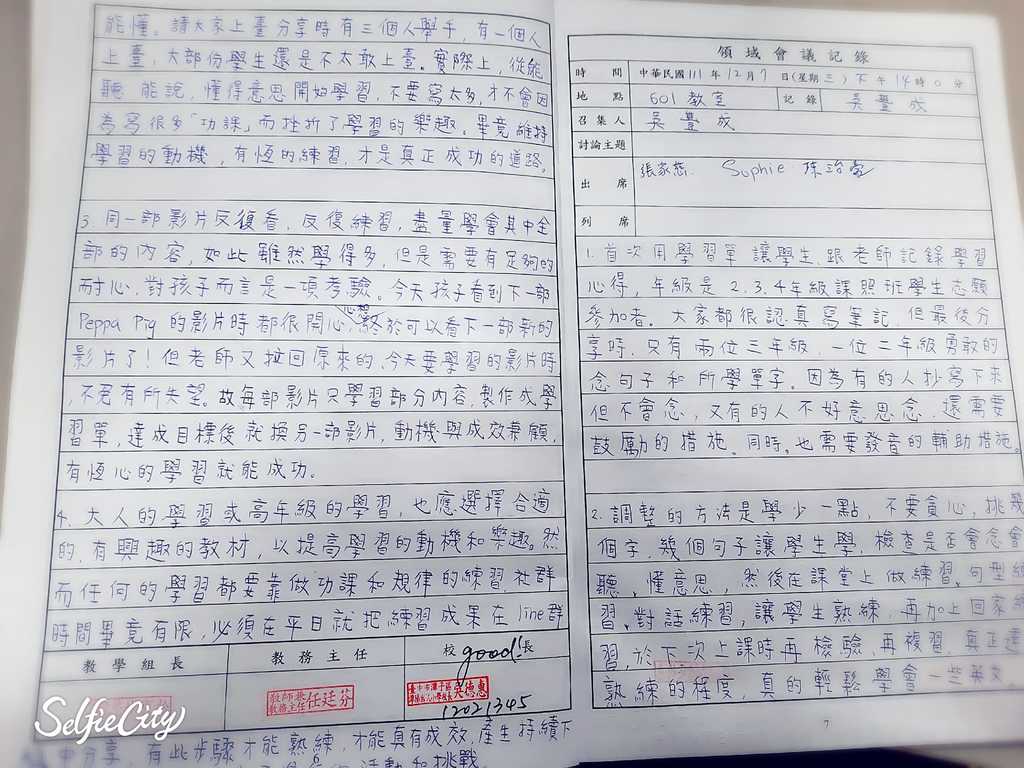 能懂。請大家上臺分享時有三個人舉手,有一個人
上臺,大部份學生還是不太敢上臺。實際上,從能
聽 能說,懂得意思開始學習,不要寫太多,才不會因
為寫很多「功課」而挫折了學習的樂趣。畢竟維持
學習的動機,有恆的練習,才是真正成功的道路。
3. 同一部影片反復看,反復練習,盡量學會其中全
部的內容,如此雖然學得多,但是需要有足夠的
耐心,對孩子而言是一項考驗。今天孩子看到下一部
Peppa Pig 的影片時都很開心,心想終於可以看下一部新的
影片了!但老師又拉回原來的、今天要學習的影片時
,不免有所失望。故每部影片只學習部分內容,製作成學
習單,達成目標後就換另一部影片,動機與成效兼顧,
有恆心的學習就能成功。
4. 大人的學習或高年級的學習,也應選擇合適
的、有興趣的教材,以提高學習的動機和樂趣。然
而任何的學習都要靠做功課和規律的練習,社群
時間畢竟有限,必須在平日就把練習成果在line群
教學組長 教務主任 校長
good!
教師兼教務主任 任廷芬
12021345
中分享,有此步驟才能熟練,才能真有成效,產生持續下
6
活動和挑戰。
SelfieCity
領域會議記錄
時間 中華民國 111 年 12 月 7 日(星期三)下午 14 時 0 分
地點 601 教室 記錄 吳豐成
召集人 吳豐成
討論主題
出席 張家慈. Sophie 陳
列席
1. 首次用學習單讓學生跟老師記錄學習
心得,年級是 2.3.4年級課照班學生志願
參加者。大家都很認真寫筆記,但最後分
享時,只有兩位三年級,一位二年級勇敢的
念句子和所學單字。因為有的人抄寫下來
但不會念,又有的人不好意思念,還需要
鼓勵的措施。同時,也需要發音的輔助措施。
2. 調整的方法是學少一點,不要貪心,挑幾
個字、幾個句子讓學生學,檢查是否會念會
聽,懂意思,然後在課堂上做練習。句型練
習、對話練習,讓學生熟練,再加上回家練
習,於下次上課時再檢驗、再複習,真正達
熟練的程度,真的輕鬆學會一些英文。
7